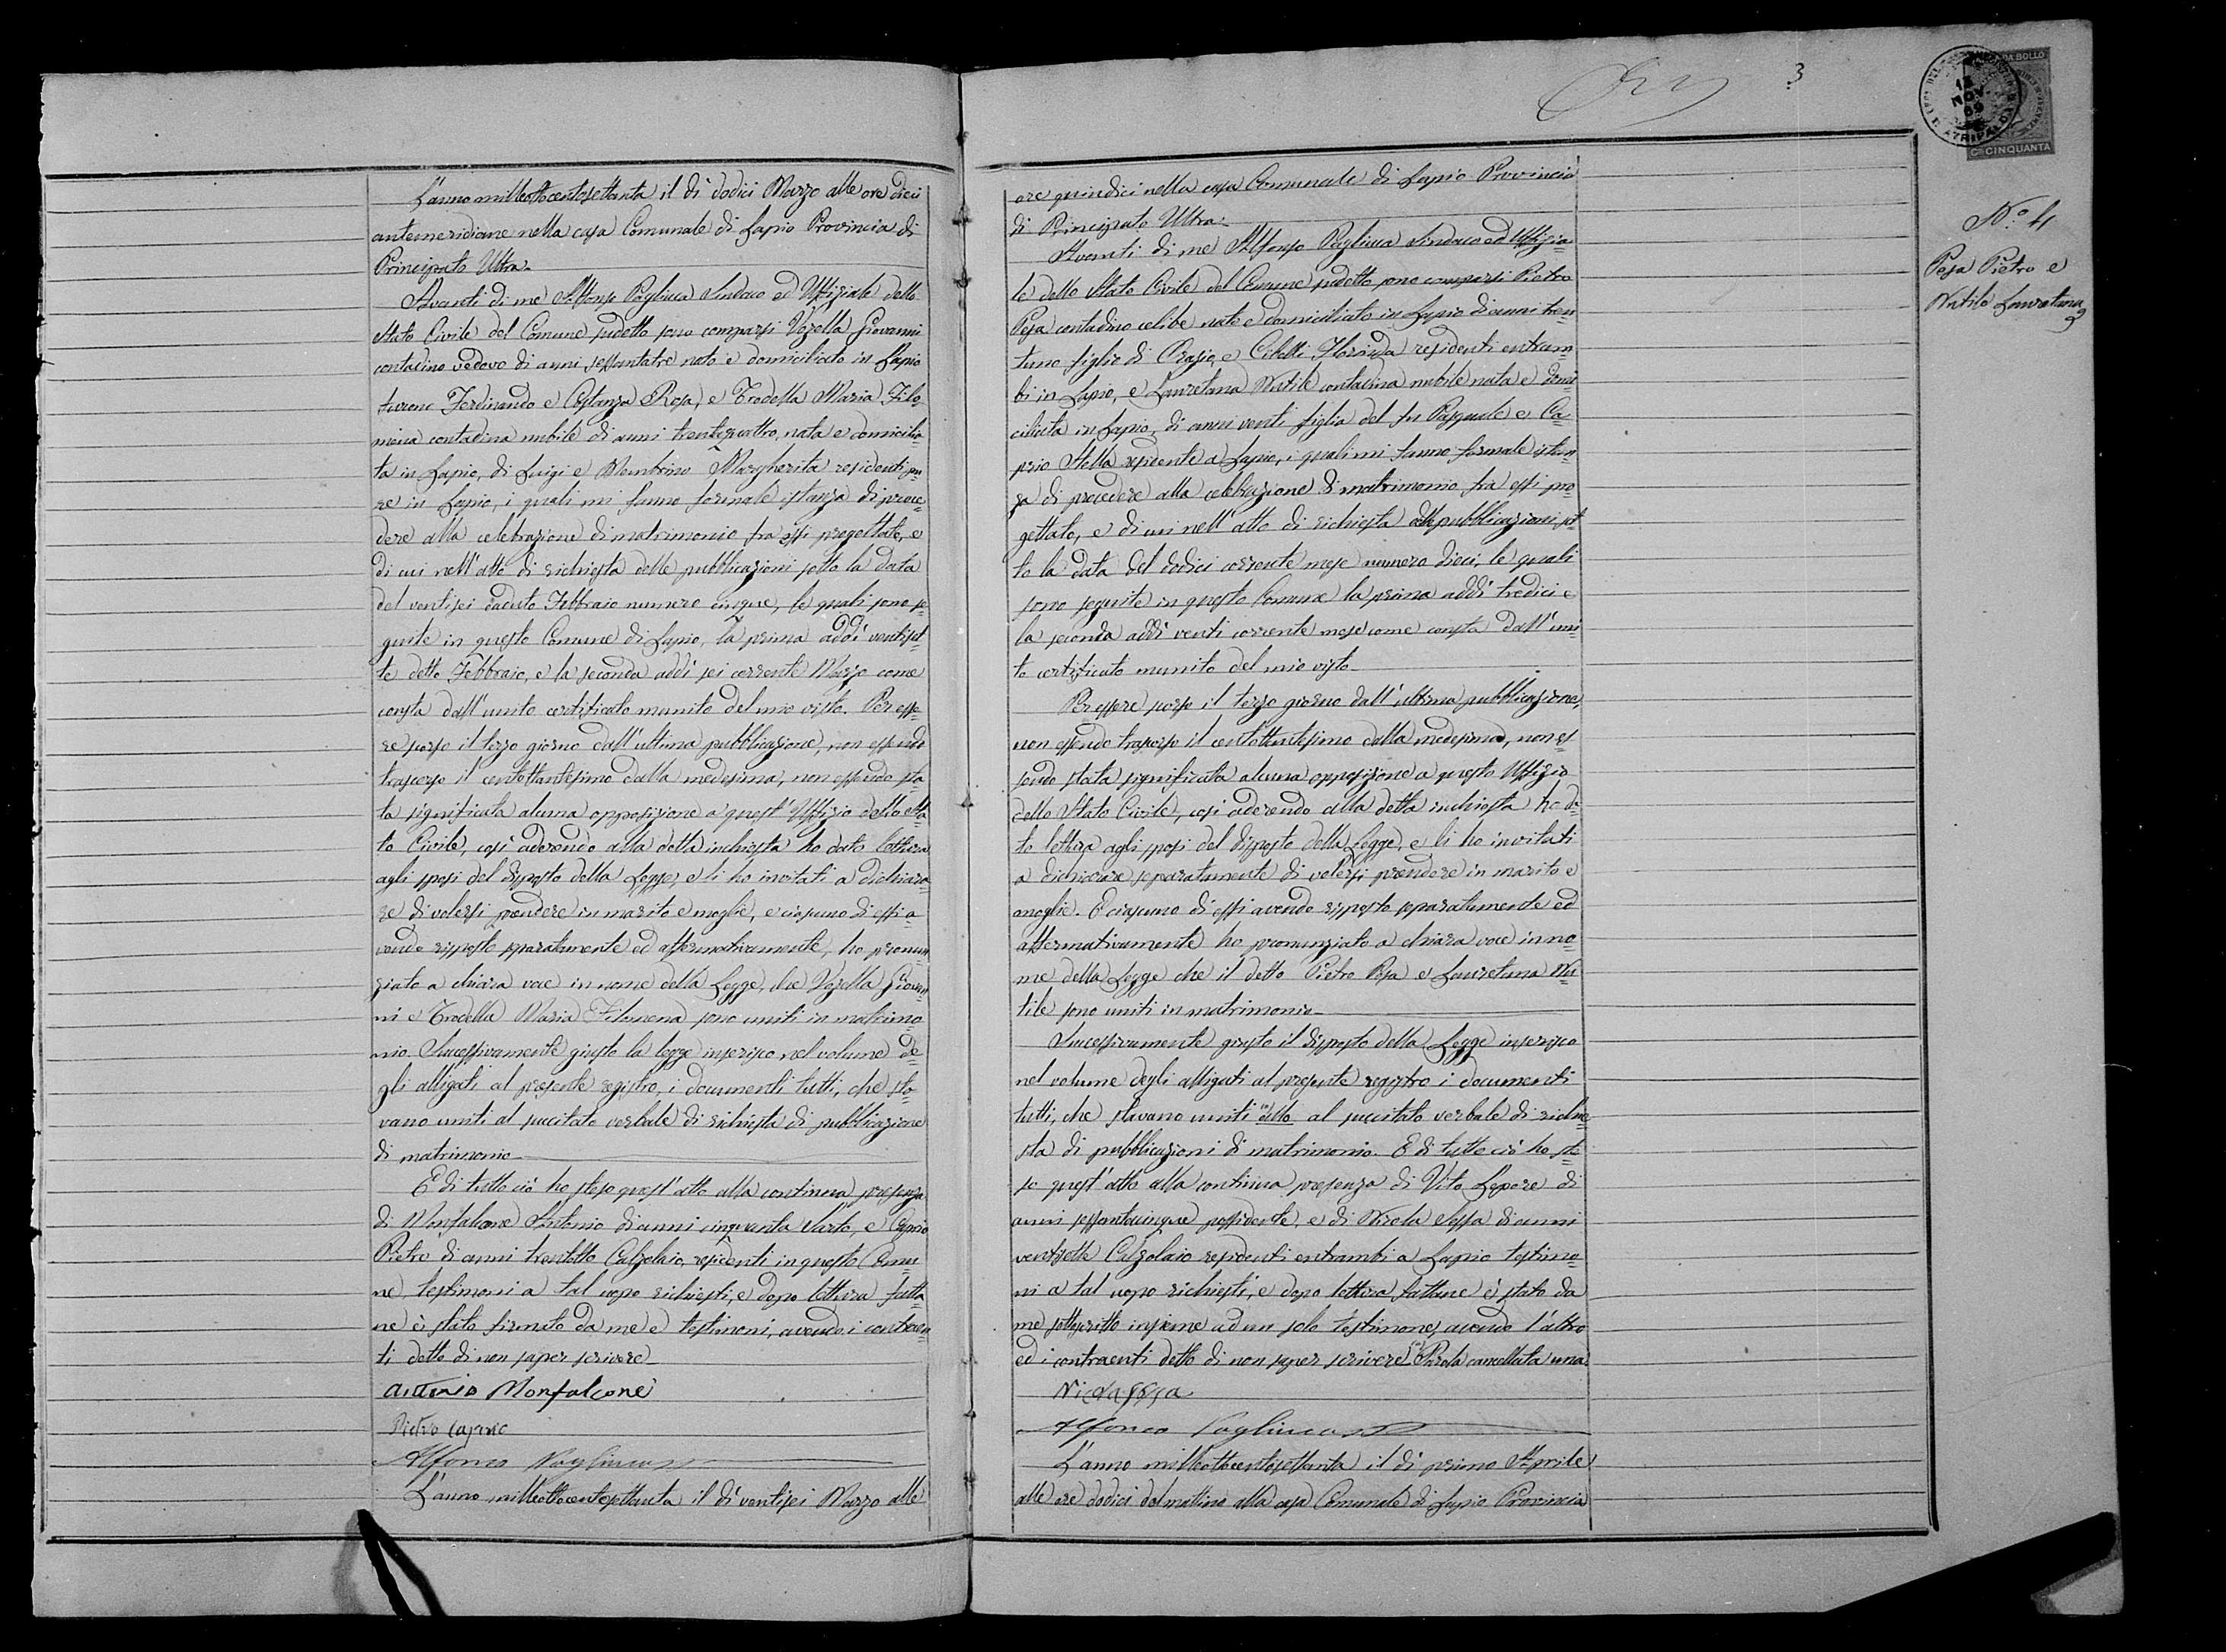 L'anno milleottocentosettanta il dì dodici Marzo alle ore dieci
antemeridiane nella casa Comunale di Lapio Provincia di
Principato Ultra.
Avanti di me Alfonso Pagliuca Sindaco ed Uffiziale dello
Stato Civile del Comune sudetto sono comparsi Vozella Giovanni
contadino vedovo di anni sessantatre nato e domiciliato in Lapio
furono Ferdinando e Costanza Rosa, e Trodella Maria Filo
mena contadina nubile di anni trentaquattro, nata e domicilia
ta in Lapio, di Luigi e Membrino Margherita residenti pu
re in Lapio, i quali mi fanno formale istanza di proce
dere alla celebrazione di matrimonio fra essi progettato, e
di cui nell'atto di richiesta delle pubblicazioni sotto la data
del ventisei caduto Febbraio numero cinque, le quali sono se
guite in questo Comune di Lapio, la prima addì ventiset
te detto Febbraio, e la seconda addì sei corrente Marzo come
consta dall'unito certificato munito del mio visto. Per esse
re scorso il terzo giorno dall'ultima pubblicazione, non essendo
trascorso il centottantesimo dalla medesima, non essendo sta
ta significata alcuna opposizione a quest'Uffizio dello Sta
to Civile, così aderendo alla detta inchiesta ho dato lettura
agli sposi del disposto della Legge, e li ho invitati a dichiara
re di volersi prendere in marito e moglie, e ciascuno di essi a
vendo risposto separatamente ed affermativamente, ho pronun
ziato a chiara voce in nome della Legge, che Vozella Giovan
ni e Trodella Maria Filomena sono uniti in matrimo
nio. Successivamente giusto la legge inserisco nel volume de
gli alligati al presente registro, i documenti tutti, che sta
vano uniti al succitato verbale di richiesta di pubblicazione
di matrimonio
E di tutto ciò ho steso quest'atto alla continova presenza
di Monfalcone Antonio di anni cinquanta Sarto, e Caprio
Pietro di anni trentotto Calzolaio, residenti in questo Comu
ne, testimoni a tal uopo richiesti, e dopo lettura fatta
ne è stato firmato da me e testimoni, avendo i contraen
ti detto di non saper scrivere
Antonio Monfalcone
Pietro Caprio
Alfonso Pagliuca
L'anno milleottocentosettanta il dì ventisei Marzo alle
3
ore quindici nella casa Comunale di Lapio Provincia
di Principato Ultra.
Avanti di me Alfonso Pagliuca Sindaco ed Uffizia
le dello Stato Civile del Comune sudetto sono comparsi Pietro
Pesa contadino celibe nato e domiciliato in Lapio di anni tren
tuno figlio di Orazio, e Cibelli Florinda residenti entram
bi in Lapio, e Lauretana Nutile contadina nubile nata e domi
ciliata in Lapio, di anni venti figlia del fu Pasquale e Ca
prio Stella residente a Lapio, i quali mi fanno formale istan
za di procedere alla celebrazione di matrimonio fra essi pro
gettato, e di cui nell'atto di richiesta delle pubblicazioni sot
to la data del dodici corrente mese numero dieci, le quali
sono seguite in questo Comune la prima addì tredici e
la seconda addì venti corrente mese come consta dall'uni
to certificato munito del mio visto
Per essere scorso il terzo giorno dall'ultima pubblicazione,
non essendo trascorso il centottantesimo dalla medesima, non es
sendo stata significata alcuna opposizione a questo Uffizio
dello Stato Civile, così aderendo alla detta inchiesta ho da
to lettura agli sposi del disposto della Legge, e li ho invitati
a dichiarare separatamente di volersi prendere in marito e
moglie. E ciascuno di essi avendo risposto separatamente ed
affermativamente ho pronunziato a chiara voce in no
me della Legge che il detto Pietro Pesa e Lauretana Nu
tile sono uniti in matrimonio
Successivamente giusto il disposto della Legge inserisco
nel volume degli alligati al presente registro i documenti
tutti, che stavano uniti dello al succitato verbale di richie
sta di pubblicazioni di matrimonio. E di tutto ciò ho ste
so quest'atto alla continua presenza di Vito Lepore di
anni sessantacinque possidente, e di Nicola Sessa di anni
ventisette Calzolaio residenti entrambi a Lapio testimo
ni a tal uopo richiesti, e dopo lettura fattane è stato da
me sottoscritto insieme ad un solo testimone, avendo l'altro
ed i contraenti detto di non saper scrivere Parola cancellata una
Alfonso Pagliuca
L'anno milleottocentosettanta il dì primo Aprile
alle ore dodici del mattino alla casa Comunale di Lapio Provincia
DA BOLLO
13
NOV
69
ATRIPALDA
CINQUANTA
N.o 4
Pesa Pietro e
Nutile Lauretana